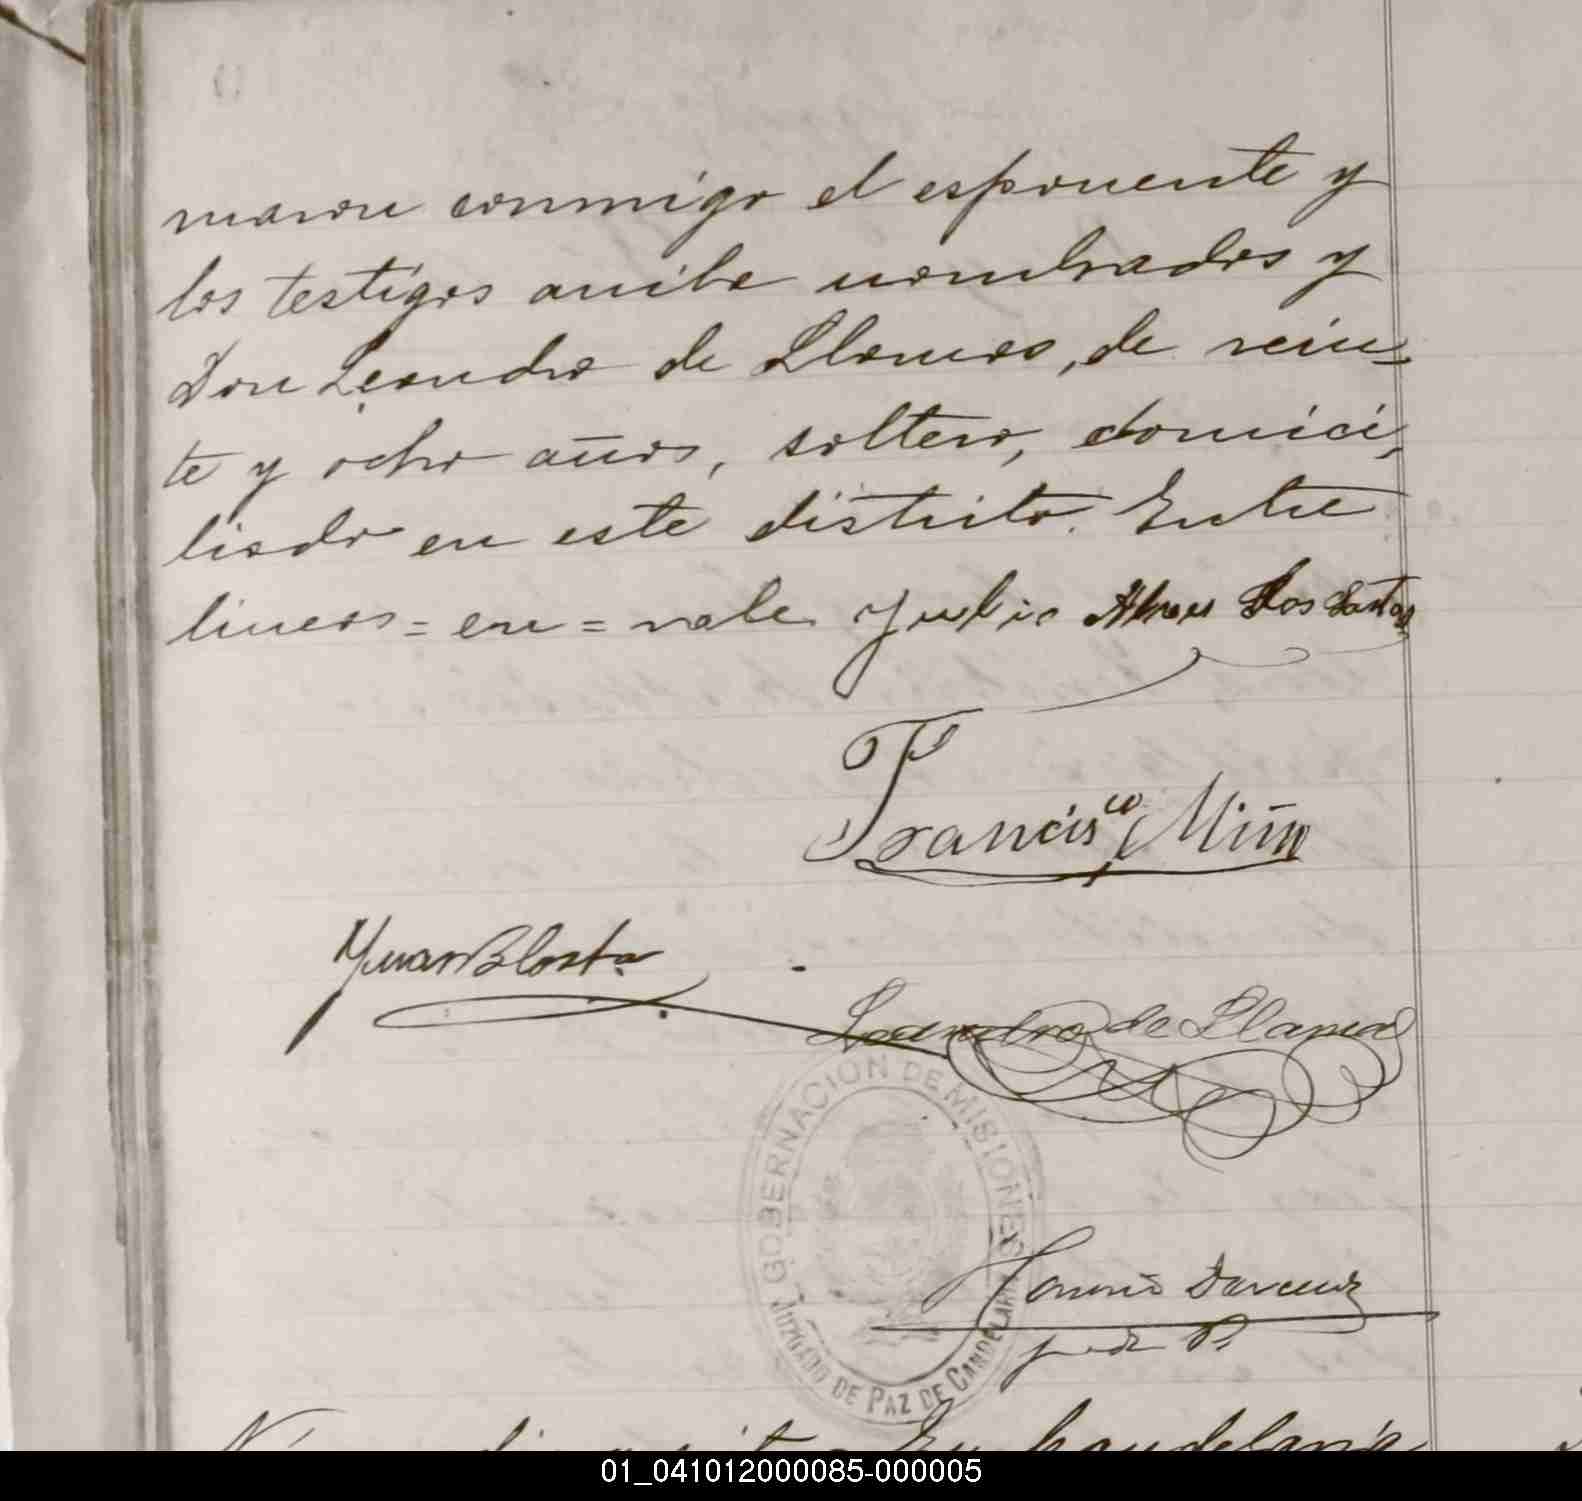 maron conmigo el esponente y
los testigos arriba nombrados y
Don Leandro de Llamas, de vein-
te y ocho años, soltero, domici-
liado en este distrito. Entre
lineas = en = vale Julio Alves Dos Santos
Francisco Miño
Juan B Costa
Leandro de Llamas
GOBERNACION DE MISIONES
JUZGADO DE PAZ DE CANDELARIA
J. de P.
En Candelaria
01_041012000085-000005